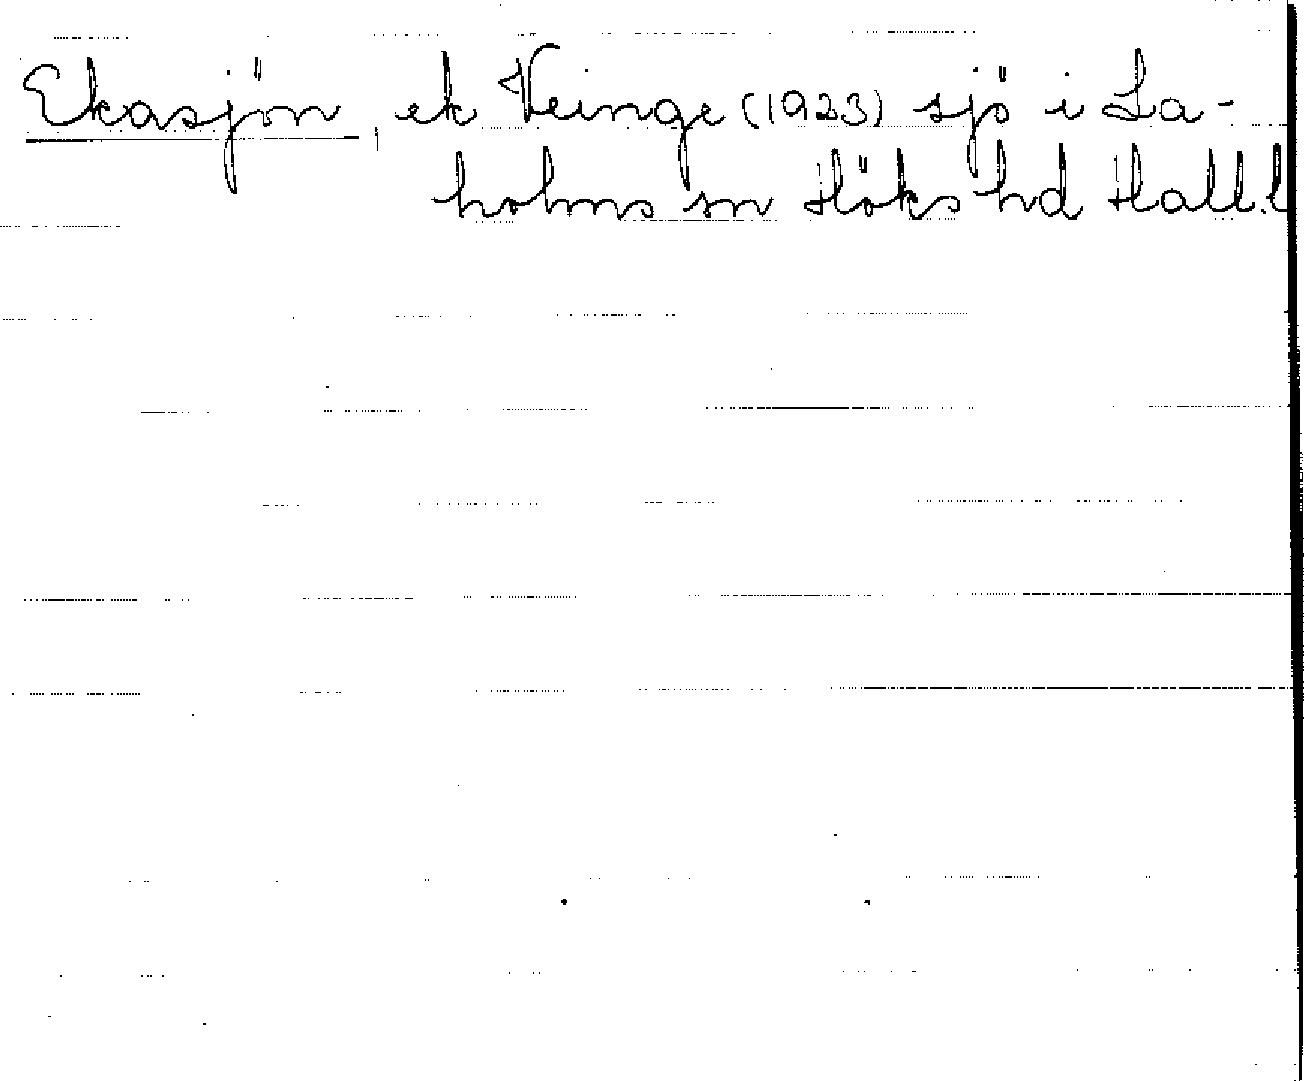 Ekasjön, ek Veinge (1923) sjö i La-
holms sn Höks hd Hall.l